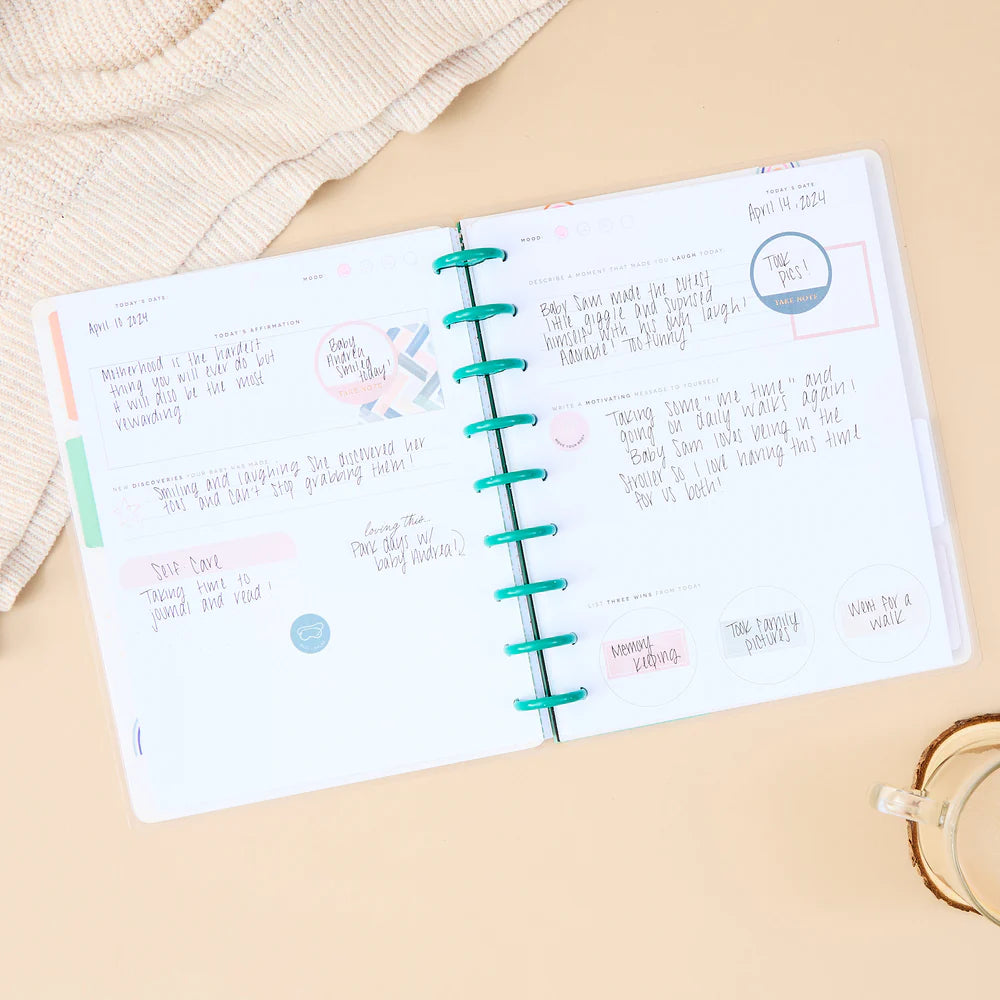 MOOD
TODAY'S DATE
April 10 2024
TODAY'S AFFIRMATION
Motherhood is the hardest
thing you will ever do but
it will also be the most
rewarding
Baby
Andrea
smiled
today!
TAKE NOTE
NEW DISCOVERIES YOUR BABY HAS MADE
Smiling and laughing She discovered her
toes and can't stop grabbing them!
Self Care
Taking time to
journal and read!
loving this...
Park days w/
baby Andrea!
TODAY'S DATE
April 14, 2024
MOOD
DESCRIBE A MOMENT THAT MADE YOU LAUGH TODAY.
Baby Sam made the cutest
little giggle and suprised
himself with his own laugh!
Adorable! Too funny
Took
pics!
TAKE NOTE
WRITE A MOTIVATING MESSAGE TO YOURSELF
Taking some "me time" and
going on daily walks again!
Baby Sam loves being in the
stroller so I love having this time
for us both!
LIST THREE WINS FROM TODAY
Memory
keeping
Took family
pictures
Went for a
walk